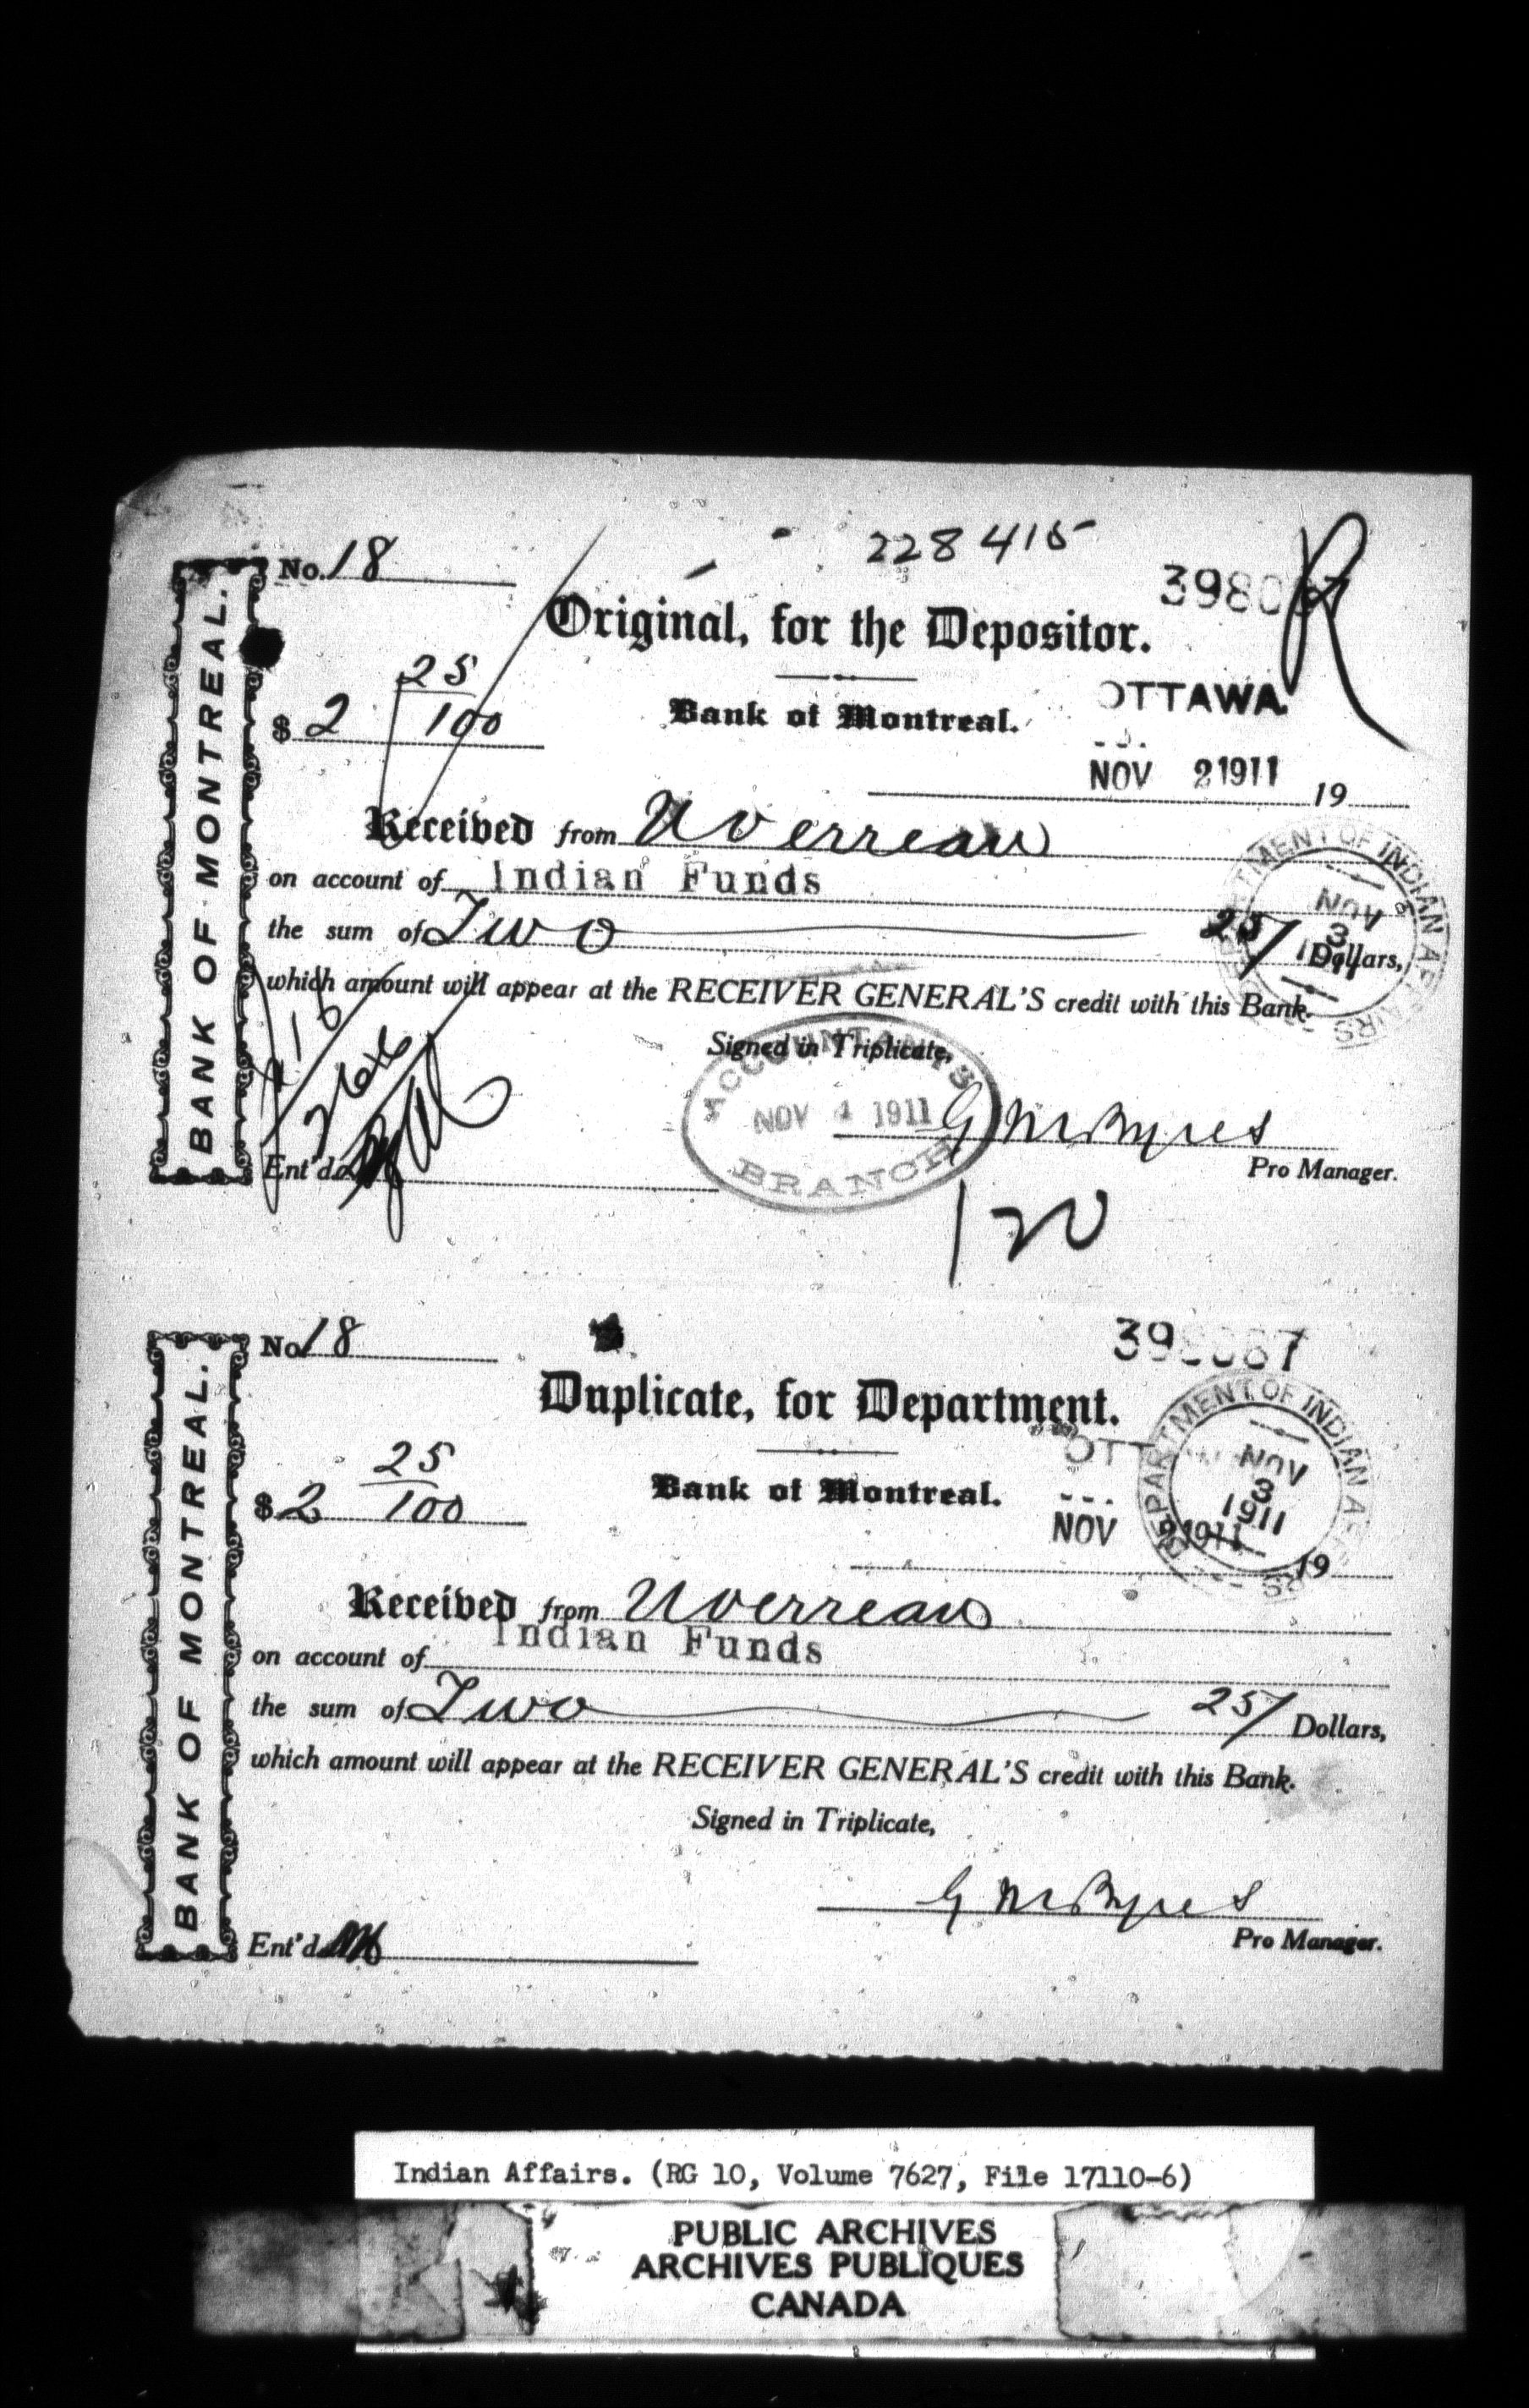 228415
No. 18
Original, for the Depositor.
$ 2 25/100
Bank of Montreal.
OTTAWA
NOV 2 1911
19
Received from Uverreau
on account of Indian Funds
the sum of Two 25/ Dollars,
which amount will appear at the RECEIVER GENERAL'S credit with this Bank.
DEPARTMENT OF INDIAN AFFAIRS
NOV 3 1911
Signed in Triplicate,
ACCOUNTANT'S BRANCH
NOV 4 1911
Pro Manager.
Ent'd
BANK OF MONTREAL.
No 18
398087
Duplicate, for Department.
$ 2 25/100
Bank of Montreal.
NOV 2 1911
19
DEPARTMENT OF INDIAN AFFAIRS
NOV 3 1911
Received from Uverreau
on account of Indian Funds
the sum of Two 25/ Dollars,
which amount will appear at the RECEIVER GENERAL'S credit with this Bank.
Signed in Triplicate,
Pro Manager.
Ent'd
BANK OF MONTREAL.
Indian Affairs. (RG 10, Volume 7627, File 17110-6)
PUBLIC ARCHIVES
ARCHIVES PUBLIQUES
CANADA